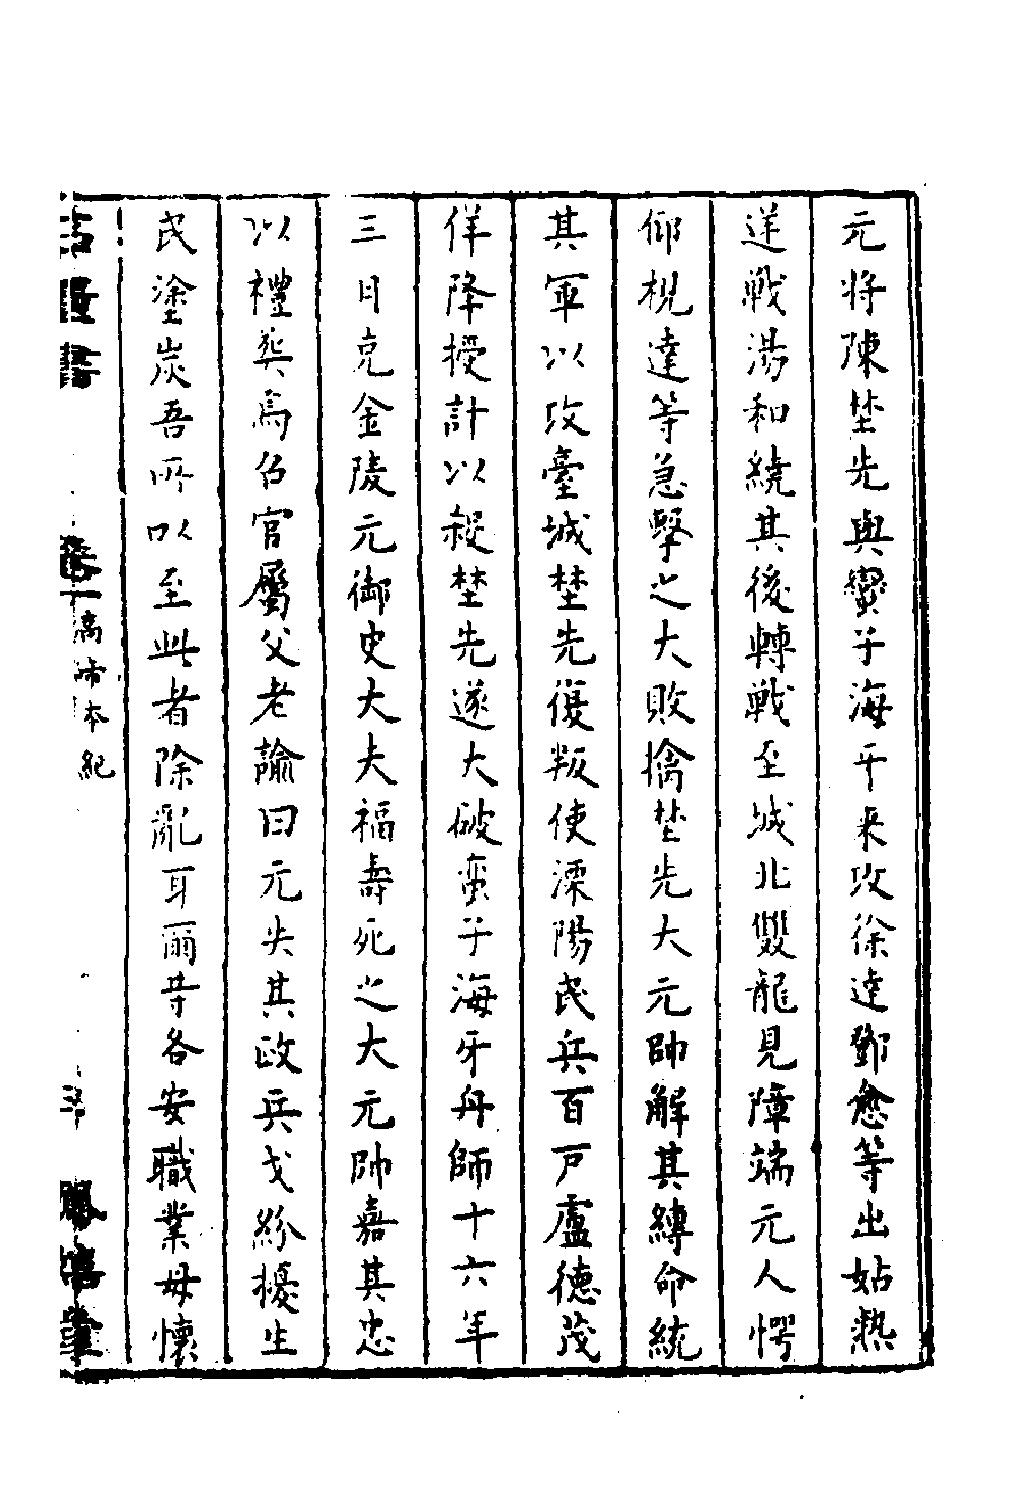 元將陳埜先與蠻子海牙来攻徐逹鄧愈等出姑熟
逆戰湯和繞其後轉戰至城北雙龍見障端元人愕
仰視達等急擊之大敗擒埜先大元帥解其縛命統
其軍以攻臺城埜先復叛使溧陽民兵百戸盧德茂
佯降授計以殺埜先遂大破蛮子海牙舟師十六年
三月克金陵元御史大夫福壽死之大元帥嘉其忠
以禮葬焉召官屬父老諭曰元失其政兵戈紛擾生
民塗炭吾所以至此者除亂耳爾等各安職業毋懷
卷一 高帝本紀